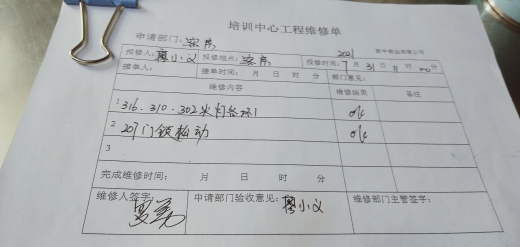 培训中心工程维修单
申请部门：客房
报修人：廖小义 报修地点：客房 报修时间：7月31日11时00分
接单人： 接单时间： 月 日 时 分 部门意见：
维修内容 维修结果 备注
1 316.310.302火灯各坏1 ok
2 207门锁松动 ok
3
完成维修时间： 月 日 时 分
维修人签字： 申请部门验收意见：廖小义 维修部门主管签字：